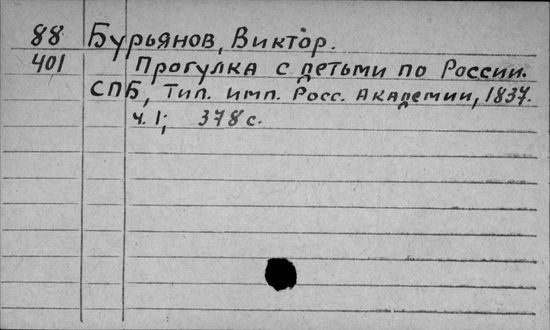 88 Бурьянов, Виктор.
401 Прогулка с детьми по России.
СПБ, Тип. имп. Росс. Академии, 1837.
ч. 1; 378 с.